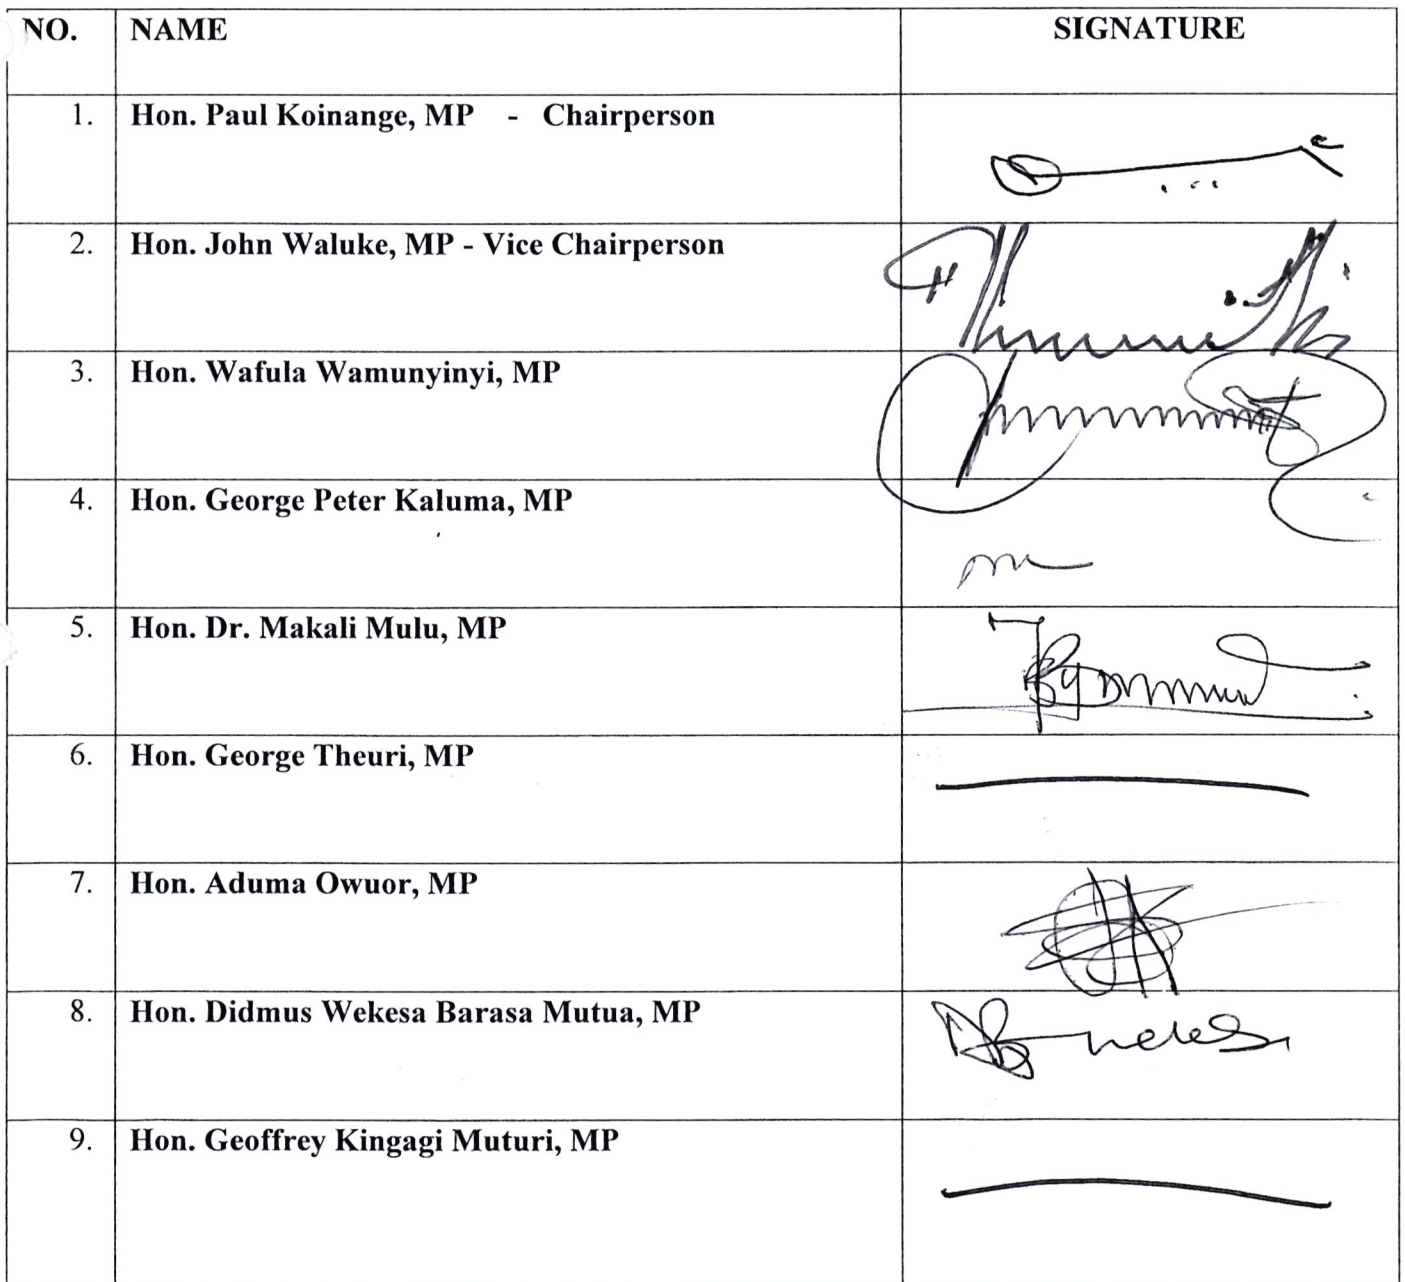 NO. NAME SIGNATURE
1. Hon. Paul Koinange, MP - Chairperson
2. Hon. John Waluke, MP - Vice Chairperson
3. Hon. Wafula Wamunyinyi, MP
4. Hon. George Peter Kaluma, MP
5. Hon. Dr. Makali Mulu, MP
6. Hon. George Theuri, MP
7. Hon. Aduma Owuor, MP
8. Hon. Didmus Wekesa Barasa Mutua, MP
9. Hon. Geoffrey Kingagi Muturi, MP